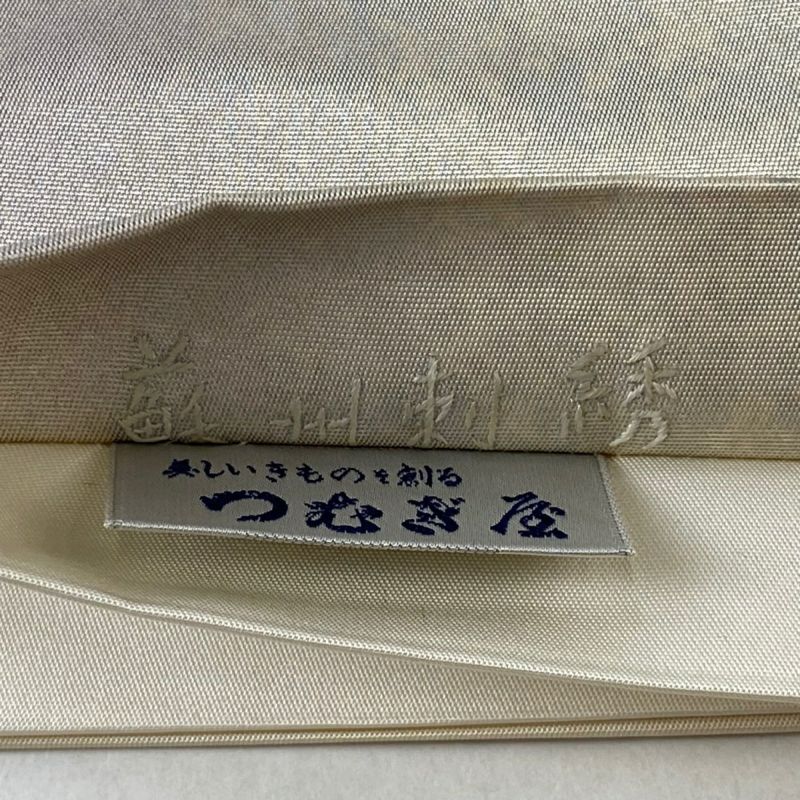 蘇州刺繍
美しいきものを創る
つむぎ屋